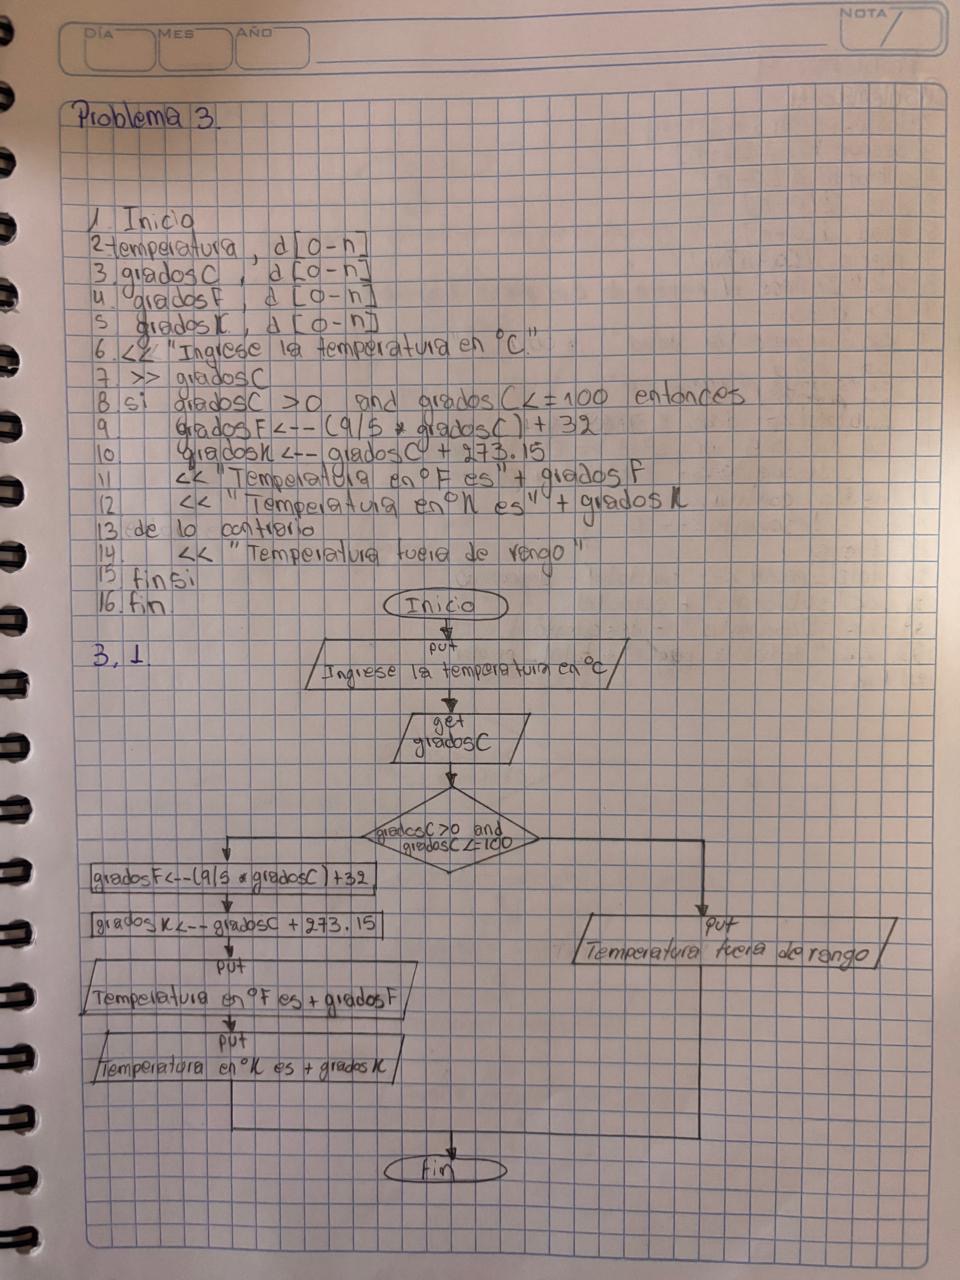 DÍA MES AÑO
NOTA
Problema 3.
1. Inicio
2. temperatura, d [0-n]
3. gradosC, d [0-n]
4. gradosF, d [0-n]
5 gradosK, d [0-n]
6. << "Ingrese la temperatura en °C"
7. >> gradosC
8 si gradosC >0 and gradosC<=100 entonces
9 gradosF<--(9/5 * gradosC) + 32
10 gradosK<-- gradosC + 273.15
11 << "Temperatura en °F es" + gradosF
12 << "Temperatura en °K es" + gradosK
13 de lo contrario
14. << "Temperatura fuera de rango"
15 finsi
16. fin
Inicio
3.1.
put
Ingrese la temperatura en °C
get
gradosC
gradosC>0 and
gradosC<=100
gradosF<--(9/5 * gradosC) +32
gradosK<-- gradosC + 273.15
put
Temperatura fuera de rango
put
Temperatura en °F es + gradosF
put
Temperatura en °K es + gradosK
fin